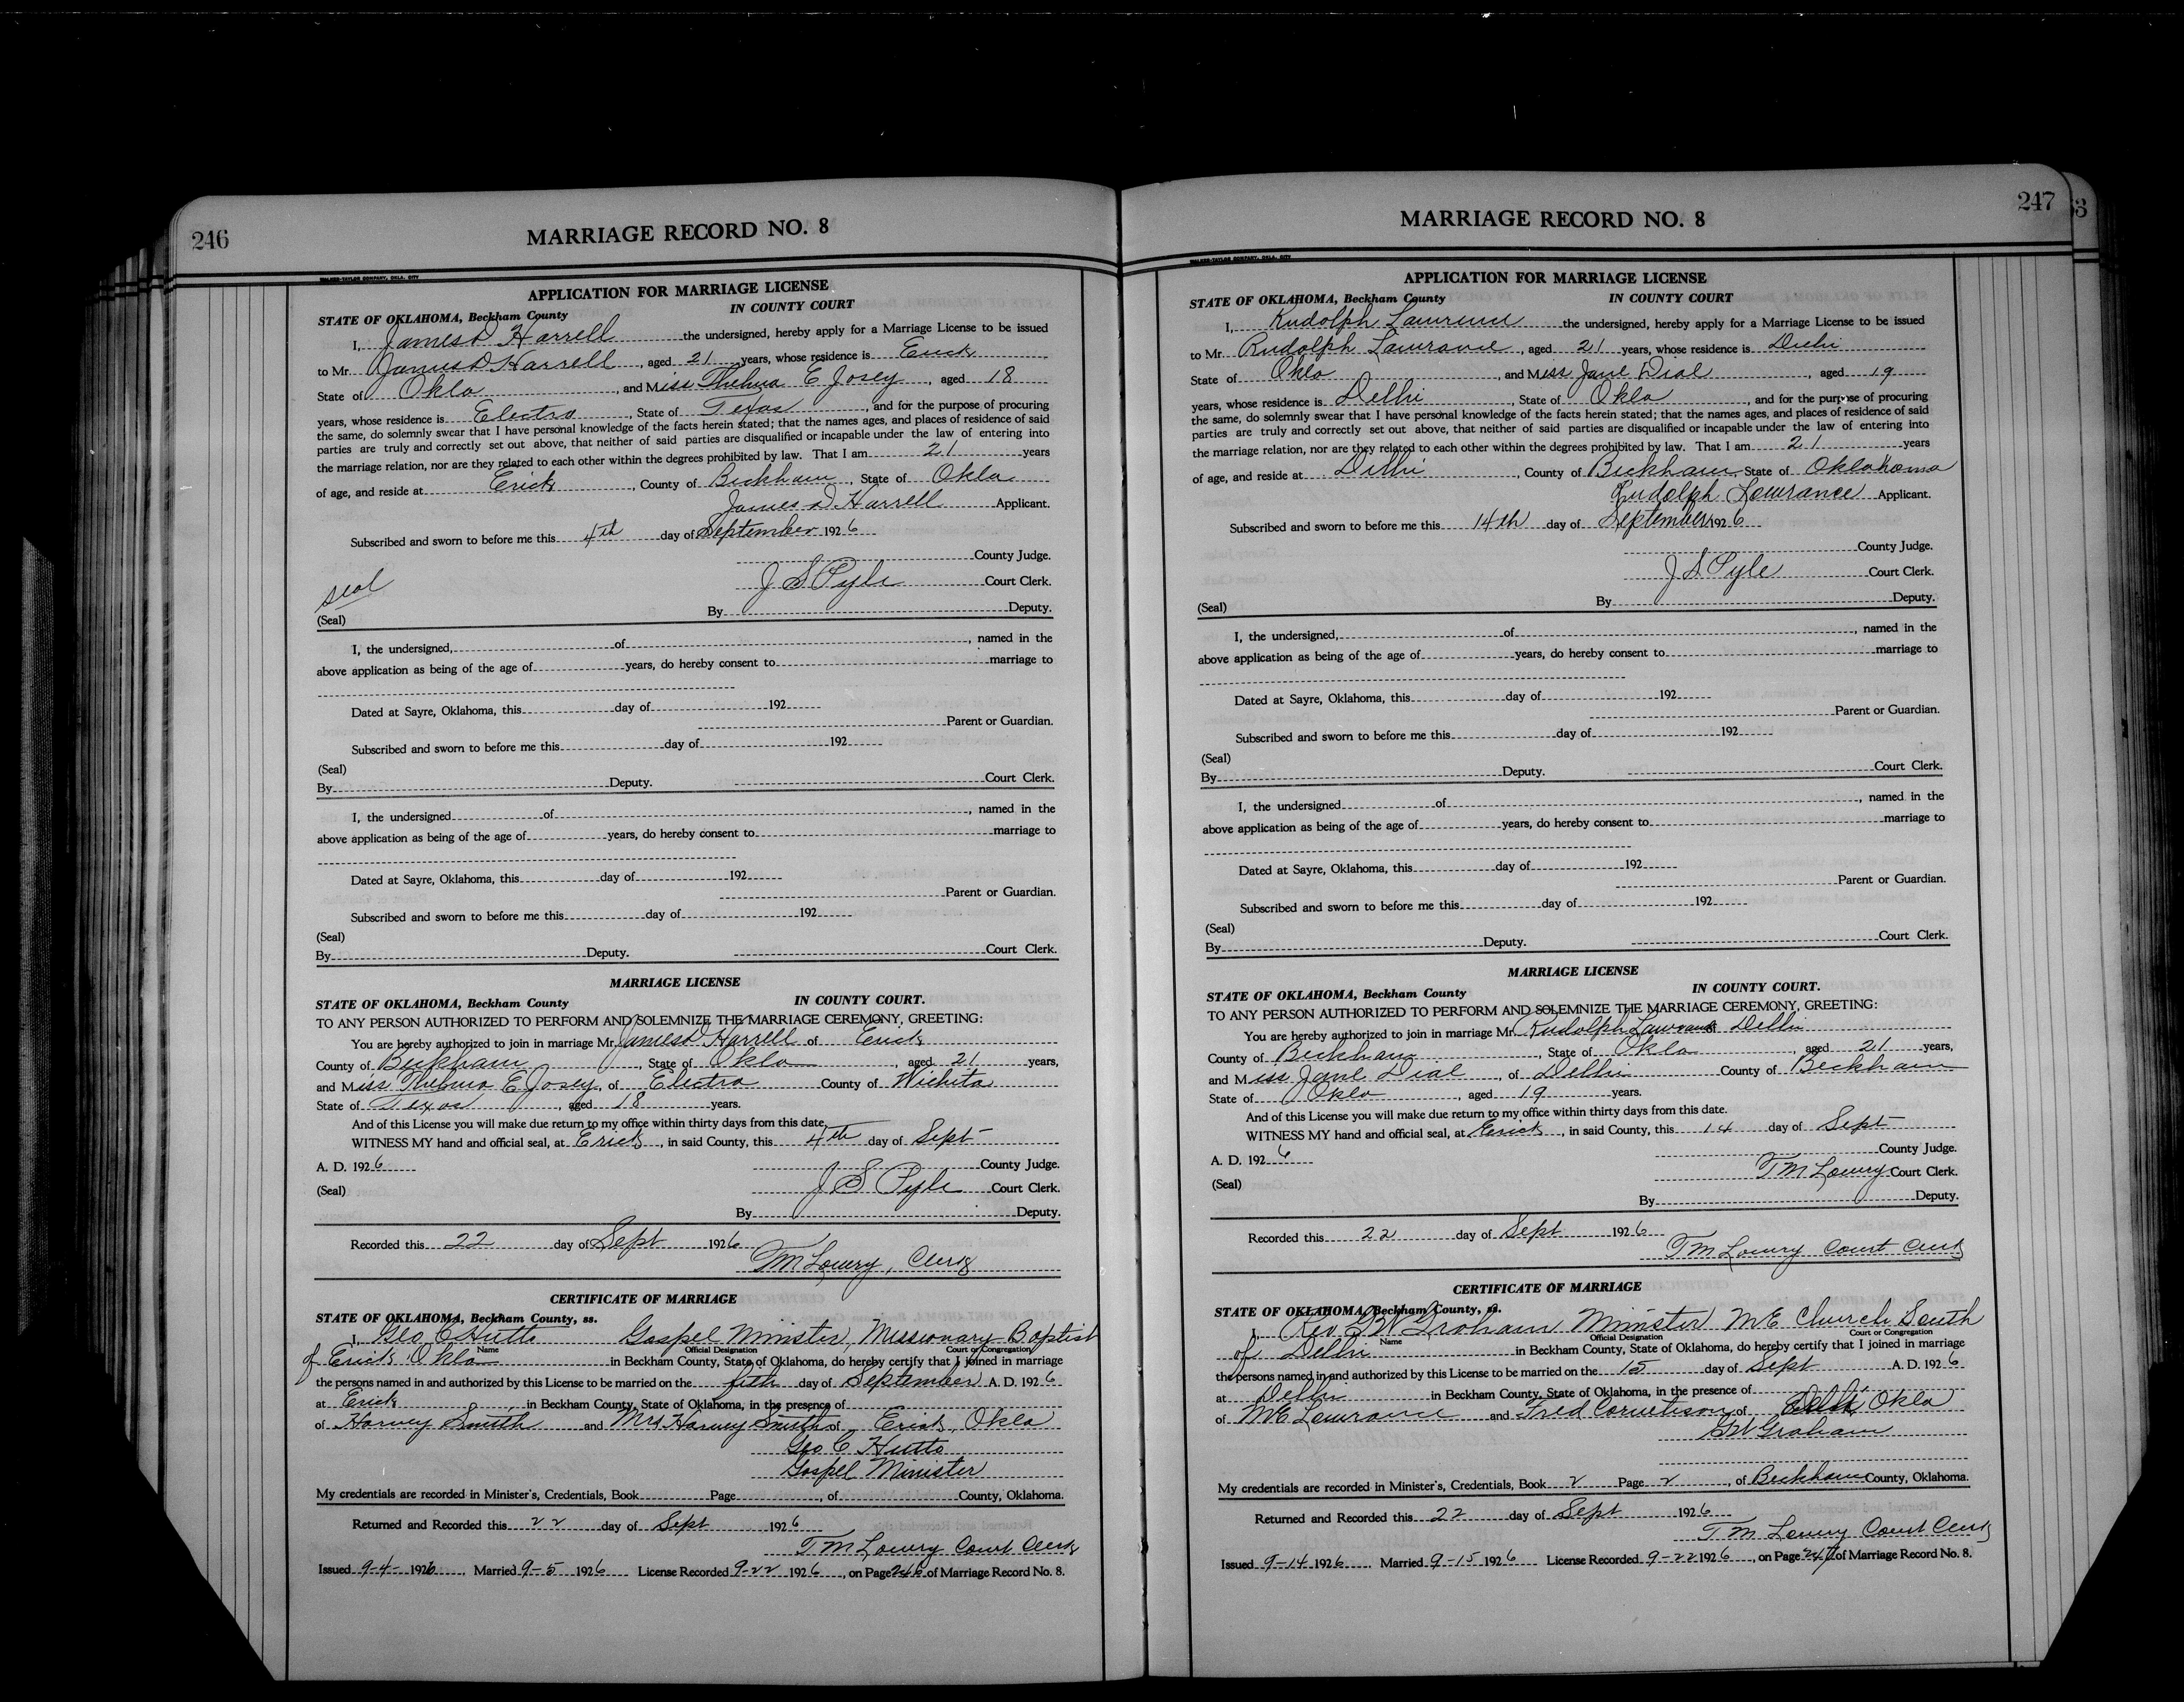 246
MARRIAGE RECORD NO. 8
WALKER-TAYLOR COMPANY, OKLA. CITY
APPLICATION FOR MARRIAGE LICENSE
STATE OF OKLAHOMA, Beckham County IN COUNTY COURT
I, James D Harrell the undersigned, hereby apply for a Marriage License to be issued
to Mr. James D Harrell, aged 21 years, whose residence is Erick
State of Okla, and Miss Thelma E Josey, aged 18
years, whose residence is Electra, State of Texas, and for the purpose of procuring
the same, do solemnly swear that I have personal knowledge of the facts herein stated; that the names ages, and places of residence of said
parties are truly and correctly set out above, that neither of said parties are disqualified or incapable under the law of entering into
the marriage relation, nor are they related to each other within the degrees prohibited by law. That I am 21 years
of age, and reside at Erick, County of Beckham, State of Okla
James D Harrell Applicant.
Subscribed and sworn to before me this 4th day of September 1926
County Judge.
seal
J S Pyle Court Clerk.
(Seal) By Deputy.
I, the undersigned, of, named in the
above application as being of the age of years, do hereby consent to marriage to
Dated at Sayre, Oklahoma, this day of 192
Parent or Guardian.
Subscribed and sworn to before me this day of 192
(Seal)
By Deputy. Court Clerk.
I, the undersigned of, named in the
above application as being of the age of years, do hereby consent to marriage to
Dated at Sayre, Oklahoma, this day of 192
Parent or Guardian.
Subscribed and sworn to before me this day of 192
(Seal)
By Deputy. Court Clerk.
MARRIAGE LICENSE
STATE OF OKLAHOMA, Beckham County IN COUNTY COURT.
TO ANY PERSON AUTHORIZED TO PERFORM AND SOLEMNIZE THE MARRIAGE CEREMONY, GREETING:
You are hereby authorized to join in marriage Mr. James D Harrell of Erick
County of Beckham, State of Okla, aged 21 years,
and Miss Thelma E Josey, of Electra County of Wichita
State of Texas, aged 18 years.
And of this License you will make due return to my office within thirty days from this date.
WITNESS MY hand and official seal, at Erick, in said County, this 4th day of Sept
A. D. 1926 County Judge.
(Seal) J S Pyle Court Clerk.
By Deputy.
Recorded this 22 day of Sept 1926
T M Lowry, Clerk
CERTIFICATE OF MARRIAGE
STATE OF OKLAHOMA, Beckham County, ss.
I, Geo C Hutto Gospel Minister, Missionary Baptist
Name Official Designation Court or Congregation
of Erick Okla in Beckham County, State of Oklahoma, do hereby certify that I joined in marriage
the persons named in and authorized by this License to be married on the day of September A. D. 1926
at Erick in Beckham County, State of Oklahoma, in the presence of
of Harvey Smith and Mrs Harvey Smith of Erick, Okla
Geo C Hutto
Gospel Minister
My credentials are recorded in Minister's, Credentials, Book Page, of County, Oklahoma.
Returned and Recorded this 22 day of Sept 1926
T M Lowry Court Clerk
Issued 9-4- 1926, Married 9-5 1926 License Recorded 9-22 1926, on Page 246 of Marriage Record No. 8.
247
53
MARRIAGE RECORD NO. 8
WALKER-TAYLOR COMPANY, OKLA. CITY
APPLICATION FOR MARRIAGE LICENSE
STATE OF OKLAHOMA, Beckham County IN COUNTY COURT
I, Rudolph Lawrence the undersigned, hereby apply for a Marriage License to be issued
to Mr. Rudolph Lawrance, aged 21 years, whose residence is Delhi
State of Okla, and Miss Jane Dial, aged 19
years, whose residence is Delhi, State of Okla, and for the purpose of procuring
the same, do solemnly swear that I have personal knowledge of the facts herein stated; that the names ages, and places of residence of said
parties are truly and correctly set out above, that neither of said parties are disqualified or incapable under the law of entering into
the marriage relation, nor are they related to each other within the degrees prohibited by law. That I am 21 years
of age, and reside at Delhi, County of Beckham State of Oklahoma
Rudolph Lowrance Applicant.
Subscribed and sworn to before me this 14th day of September 1926
County Judge.
J S Pyle Court Clerk.
(Seal) By Deputy.
I, the undersigned, of, named in the
above application as being of the age of years, do hereby consent to marriage to
Dated at Sayre, Oklahoma, this day of 192
Parent or Guardian.
Subscribed and sworn to before me this day of 192
(Seal)
By Deputy. Court Clerk.
I, the undersigned of, named in the
above application as being of the age of years, do hereby consent to marriage to
Dated at Sayre, Oklahoma, this day of 192
Parent or Guardian.
Subscribed and sworn to before me this day of 192
(Seal)
By Deputy. Court Clerk.
MARRIAGE LICENSE
STATE OF OKLAHOMA, Beckham County IN COUNTY COURT.
TO ANY PERSON AUTHORIZED TO PERFORM AND SOLEMNIZE THE MARRIAGE CEREMONY, GREETING:
You are hereby authorized to join in marriage Mr. Rudolph Lawrance Delhi
County of Beckham, State of Okla, aged 21 years,
and Miss Jane Dial, of Delhi County of Beckham
State of Okla, aged 19 years.
And of this License you will make due return to my office within thirty days from this date.
WITNESS MY hand and official seal, at Erick, in said County, this 14 day of Sept
A. D. 1926 County Judge.
(Seal) T M Lowry Court Clerk.
By Deputy.
Recorded this 22 day of Sept 1926
T M Lowry Court Clerk
CERTIFICATE OF MARRIAGE
STATE OF OKLAHOMA, Beckham County, ss.
I, Rev G W Graham Minister M E Church South
Name Official Designation Court or Congregation
of Delhi in Beckham County, State of Oklahoma, do hereby certify that I joined in marriage
the persons named in and authorized by this License to be married on the 15 day of Sept A. D. 1926
at Delhi in Beckham County, State of Oklahoma, in the presence of
of M E Lowrance and Fred Cornetison of Delhi, Okla
G W Graham
My credentials are recorded in Minister's, Credentials, Book 2 Page 2, of Beckham County, Oklahoma.
Returned and Recorded this 22 day of Sept 1926
T M Lowry Court Clerk
Issued 9-14 1926 Married 9-15 1926 License Recorded 9-22 1926, on Page 247 of Marriage Record No. 8.